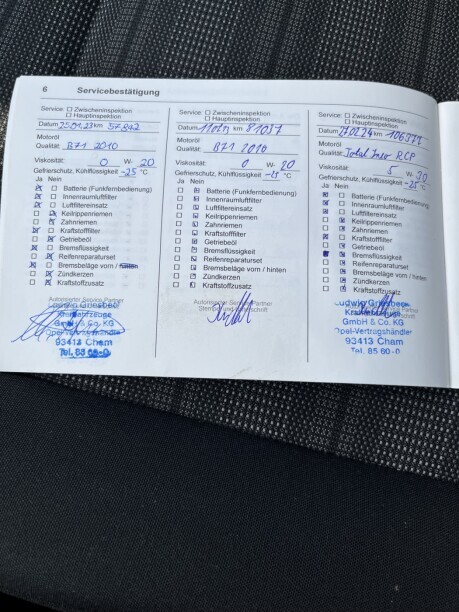 6 Servicebestätigung
Service: ☐ Zwischeninspektion
☐ Hauptinspektion
Datum 25.01.23 km
Motoröl
Qualität: B71 2010
Viskosität: 0 W- 20
Gefrierschutz, Kühlflüssigkeit -25 °C
Ja Nein
Batterie (Funkfernbedienung)
Innenraumluftfilter
Luftfiltereinsatz
Keilrippenriemen
Zahnriemen
Kraftstofffilter
Getriebeöl
Bremsflüssigkeit
Reifenreparaturset
Bremsbeläge vorn / hinten
Zündkerzen
Kraftstoffzusatz
Autorisierter Service Partner
GmbH & Co. KG
Opel-Vertragshändler
93413 Cham
Tel. 85 60-0
Service: ☐ Zwischeninspektion
☐ Hauptinspektion
Datum km 81057
Motoröl
Qualität: B71 2010
Viskosität: 0 W- 20
Gefrierschutz, Kühlflüssigkeit -25 °C
Ja Nein
Batterie (Funkfernbedienung)
Innenraumluftfilter
Luftfiltereinsatz
Keilrippenriemen
Zahnriemen
Kraftstofffilter
Getriebeöl
Bremsflüssigkeit
Reifenreparaturset
Bremsbeläge vorn / hinten
Zündkerzen
Kraftstoffzusatz
Autorisierter Service Partner
Stempel und Unterschrift
Service: ☐ Zwischeninspektion
☐ Hauptinspektion
Datum km
Motoröl
Qualität: Total Ineo RCP
Viskosität: 5 W- 20
Gefrierschutz, Kühlflüssigkeit -25 °C
Ja Nein
Batterie (Funkfernbedienung)
Innenraumluftfilter
Luftfiltereinsatz
Keilrippenriemen
Zahnriemen
Kraftstofffilter
Getriebeöl
Bremsflüssigkeit
Reifenreparaturset
Bremsbeläge vorn / hinten
Zündkerzen
Kraftstoffzusatz
Kraftfahrzeuge
GmbH & Co. KG
Opel-Vertragshändler
93413 Cham
Tel. 85 60-0